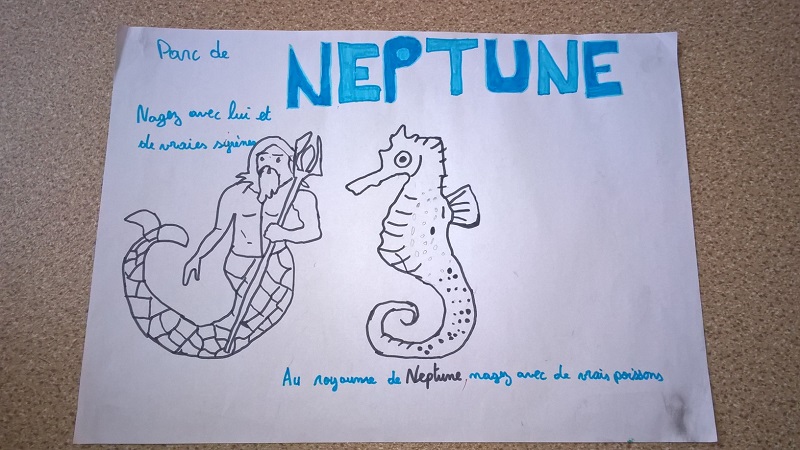 Parc de NEPTUNE
Nagez avec lui et
de vraies sirènes
Au royaume de Neptune, nagez avec de vrais poissons